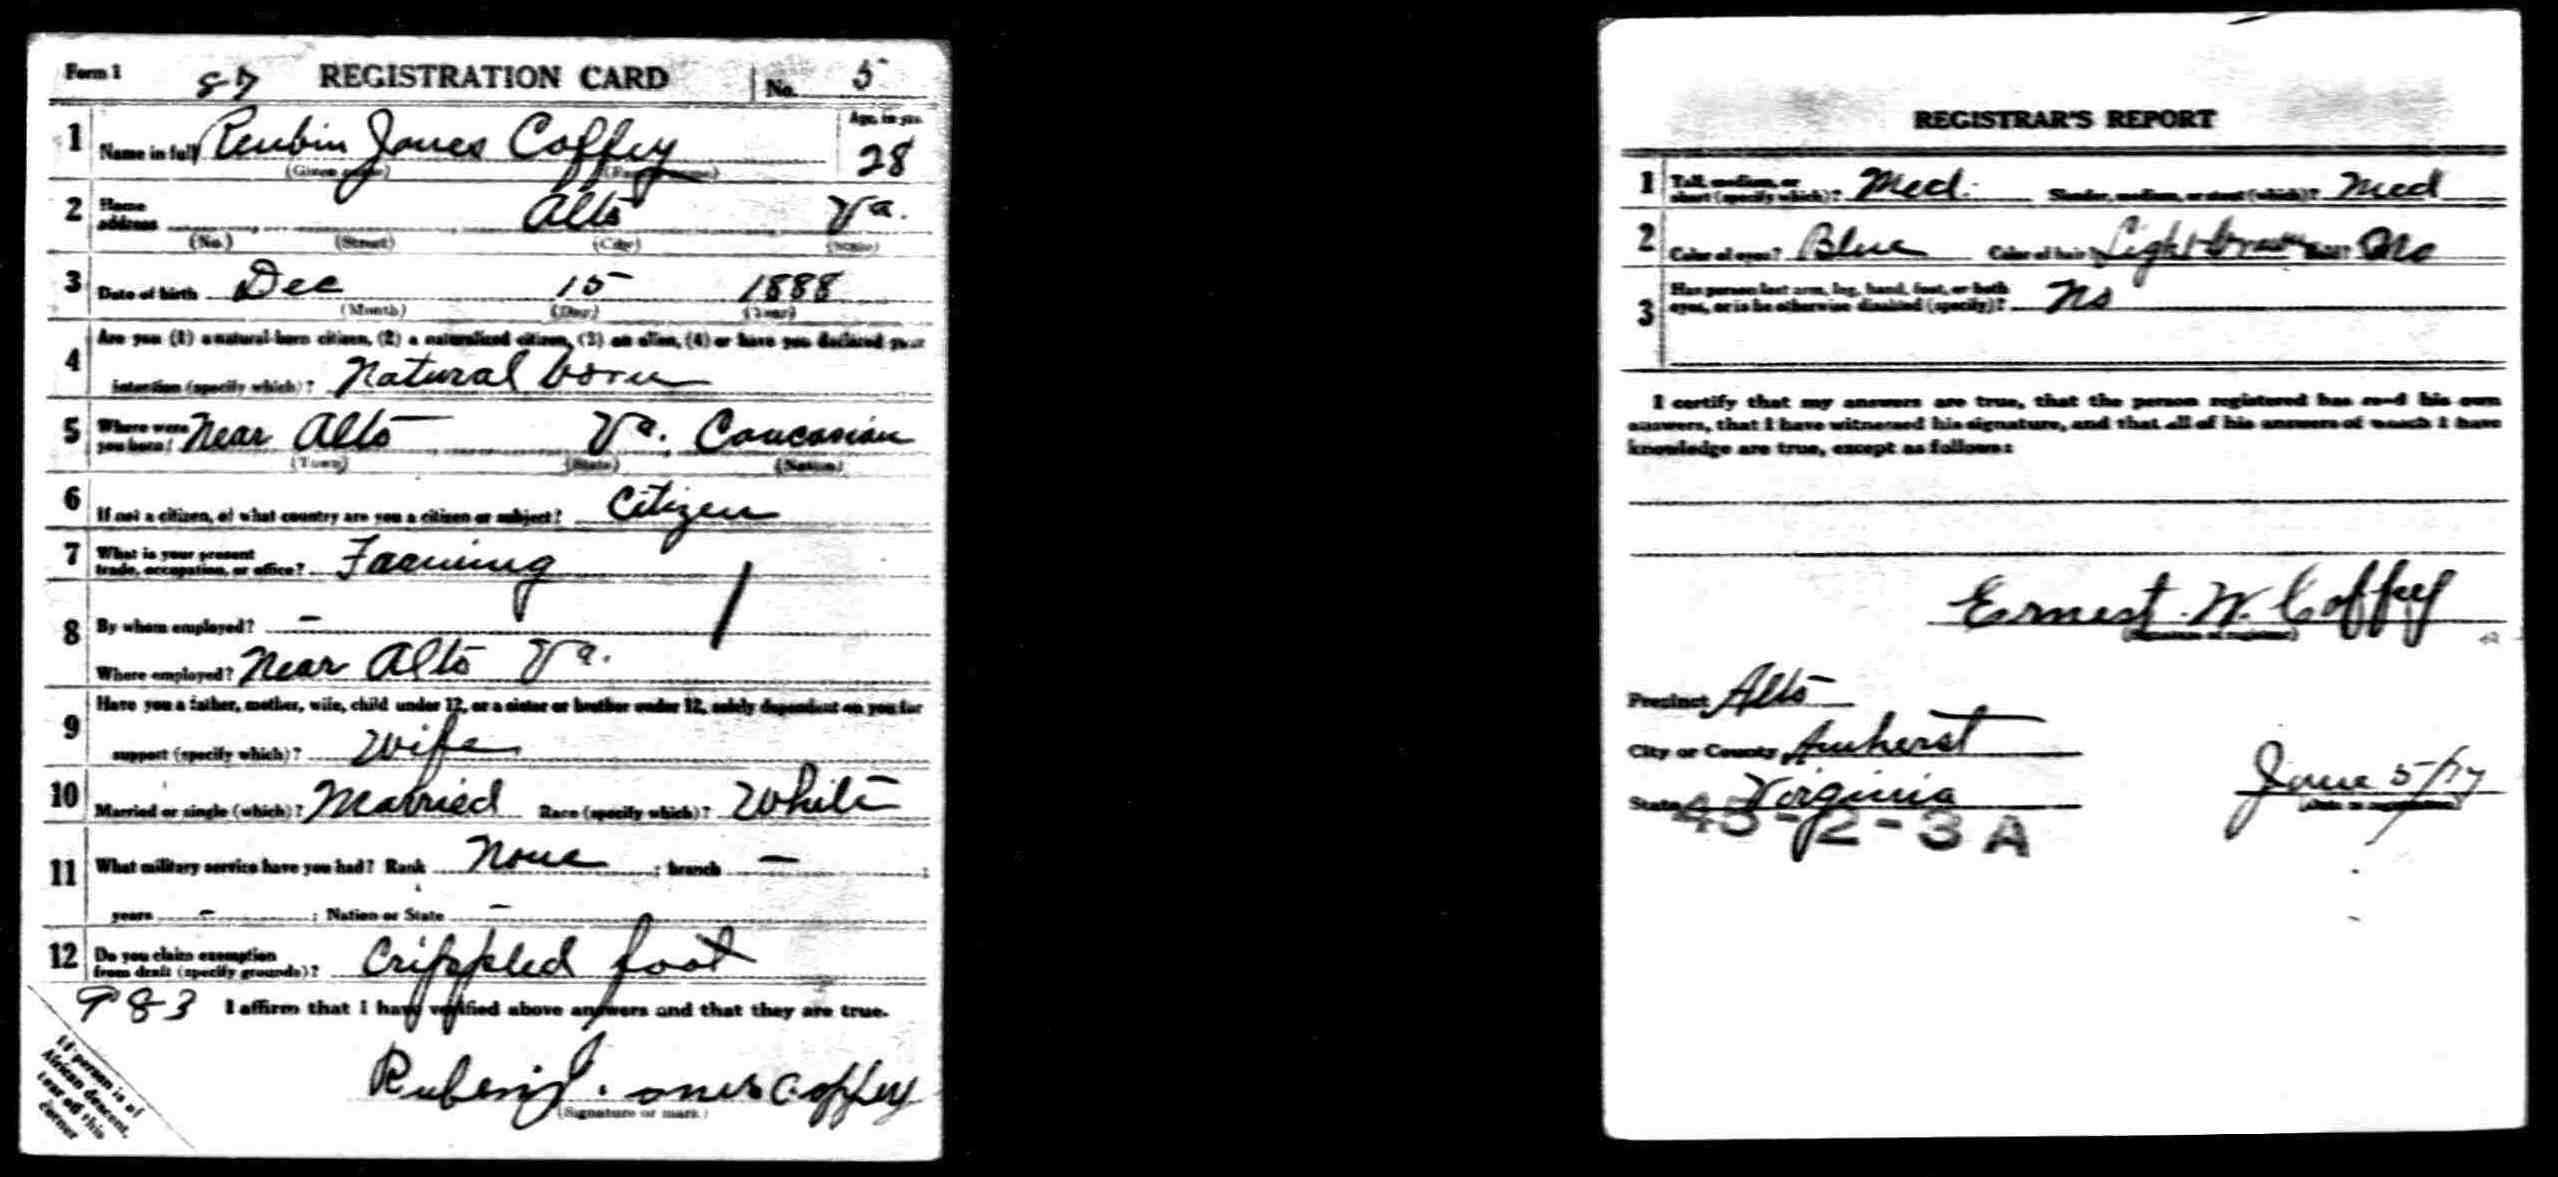 Form 1 87 REGISTRATION CARD No. 5
1 Name in full Reubin Jones Coffey Age, in yrs. 28
(Given name) (Family name)
2 Home address Alto Va.
(No.) (Street) (City) (State)
3 Date of birth Dec 15 1888
(Month) (Day) (Year)
4 Are you (1) a natural-born citizen, (2) a naturalized citizen, (3) an alien, (4) or have you declared your
intention (specify which)? Natural born
5 Where were you born? Near Alto Va. Caucasian
(Town) (State) (Nation)
6 If not a citizen, of what country are you a citizen or subject? Citizen
7 What is your present
trade, occupation, or office? Farming
8 By whom employed? —
Where employed? Near Alto Va.
9 Have you a father, mother, wife, child under 12, or a sister or brother under 12, solely dependent on you for
support (specify which)? Wife
10 Married or single (which)? Married Race (specify which)? White
11 What military service have you had? Rank None ; branch — ;
years — ; Nation or State —
12 Do you claim exemption
from draft (specify grounds)? Crippled foot
983 I affirm that I have verified above answers and that they are true.
Ruben J. ones Coffey
(Signature or mark)
If person is of
African descent,
tear off this
corner
REGISTRAR'S REPORT
1 Tall, medium, or
short (specify which)? Med. Slender, medium, or stout (which)? Med
2 Color of eyes? Blue Color of hair? Light brown Bald? No
3 Has person lost arm, leg, hand, foot, or both
eyes, or is he otherwise disabled (specify)? No
I certify that my answers are true, that the person registered has read his own
answers, that I have witnessed his signature, and that all of his answers of which I have
knowledge are true, except as follows:
Ernest W. Coffey
(Signature of registrar)
Precinct Alto
City or County Amherst
State Virginia June 5/17
(Date of registration)
45-2-3 A